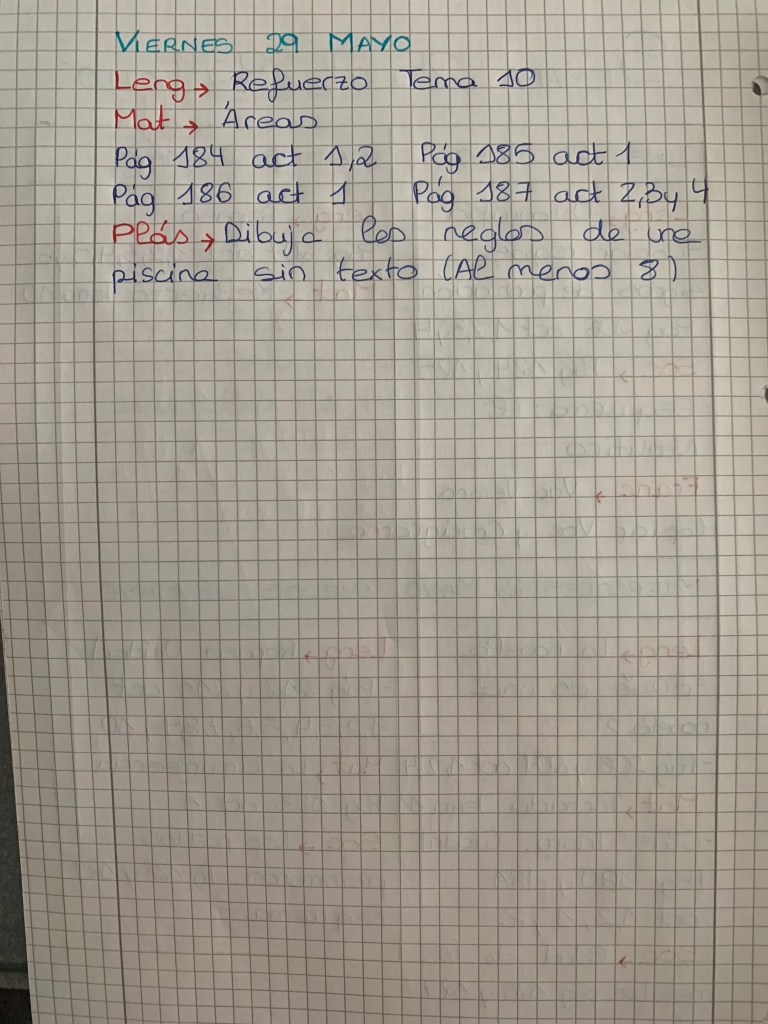 VIERNES 29 MAYO
Leng → Refuerzo Tema 10
Mat → Áreas
Pág 184 act 1,2 Pág 185 act 1
Pág 186 act 1 Pág 187 act 2,3 y 4
Plás → Dibuja las reglas de una
piscina sin texto (Al menos 8)